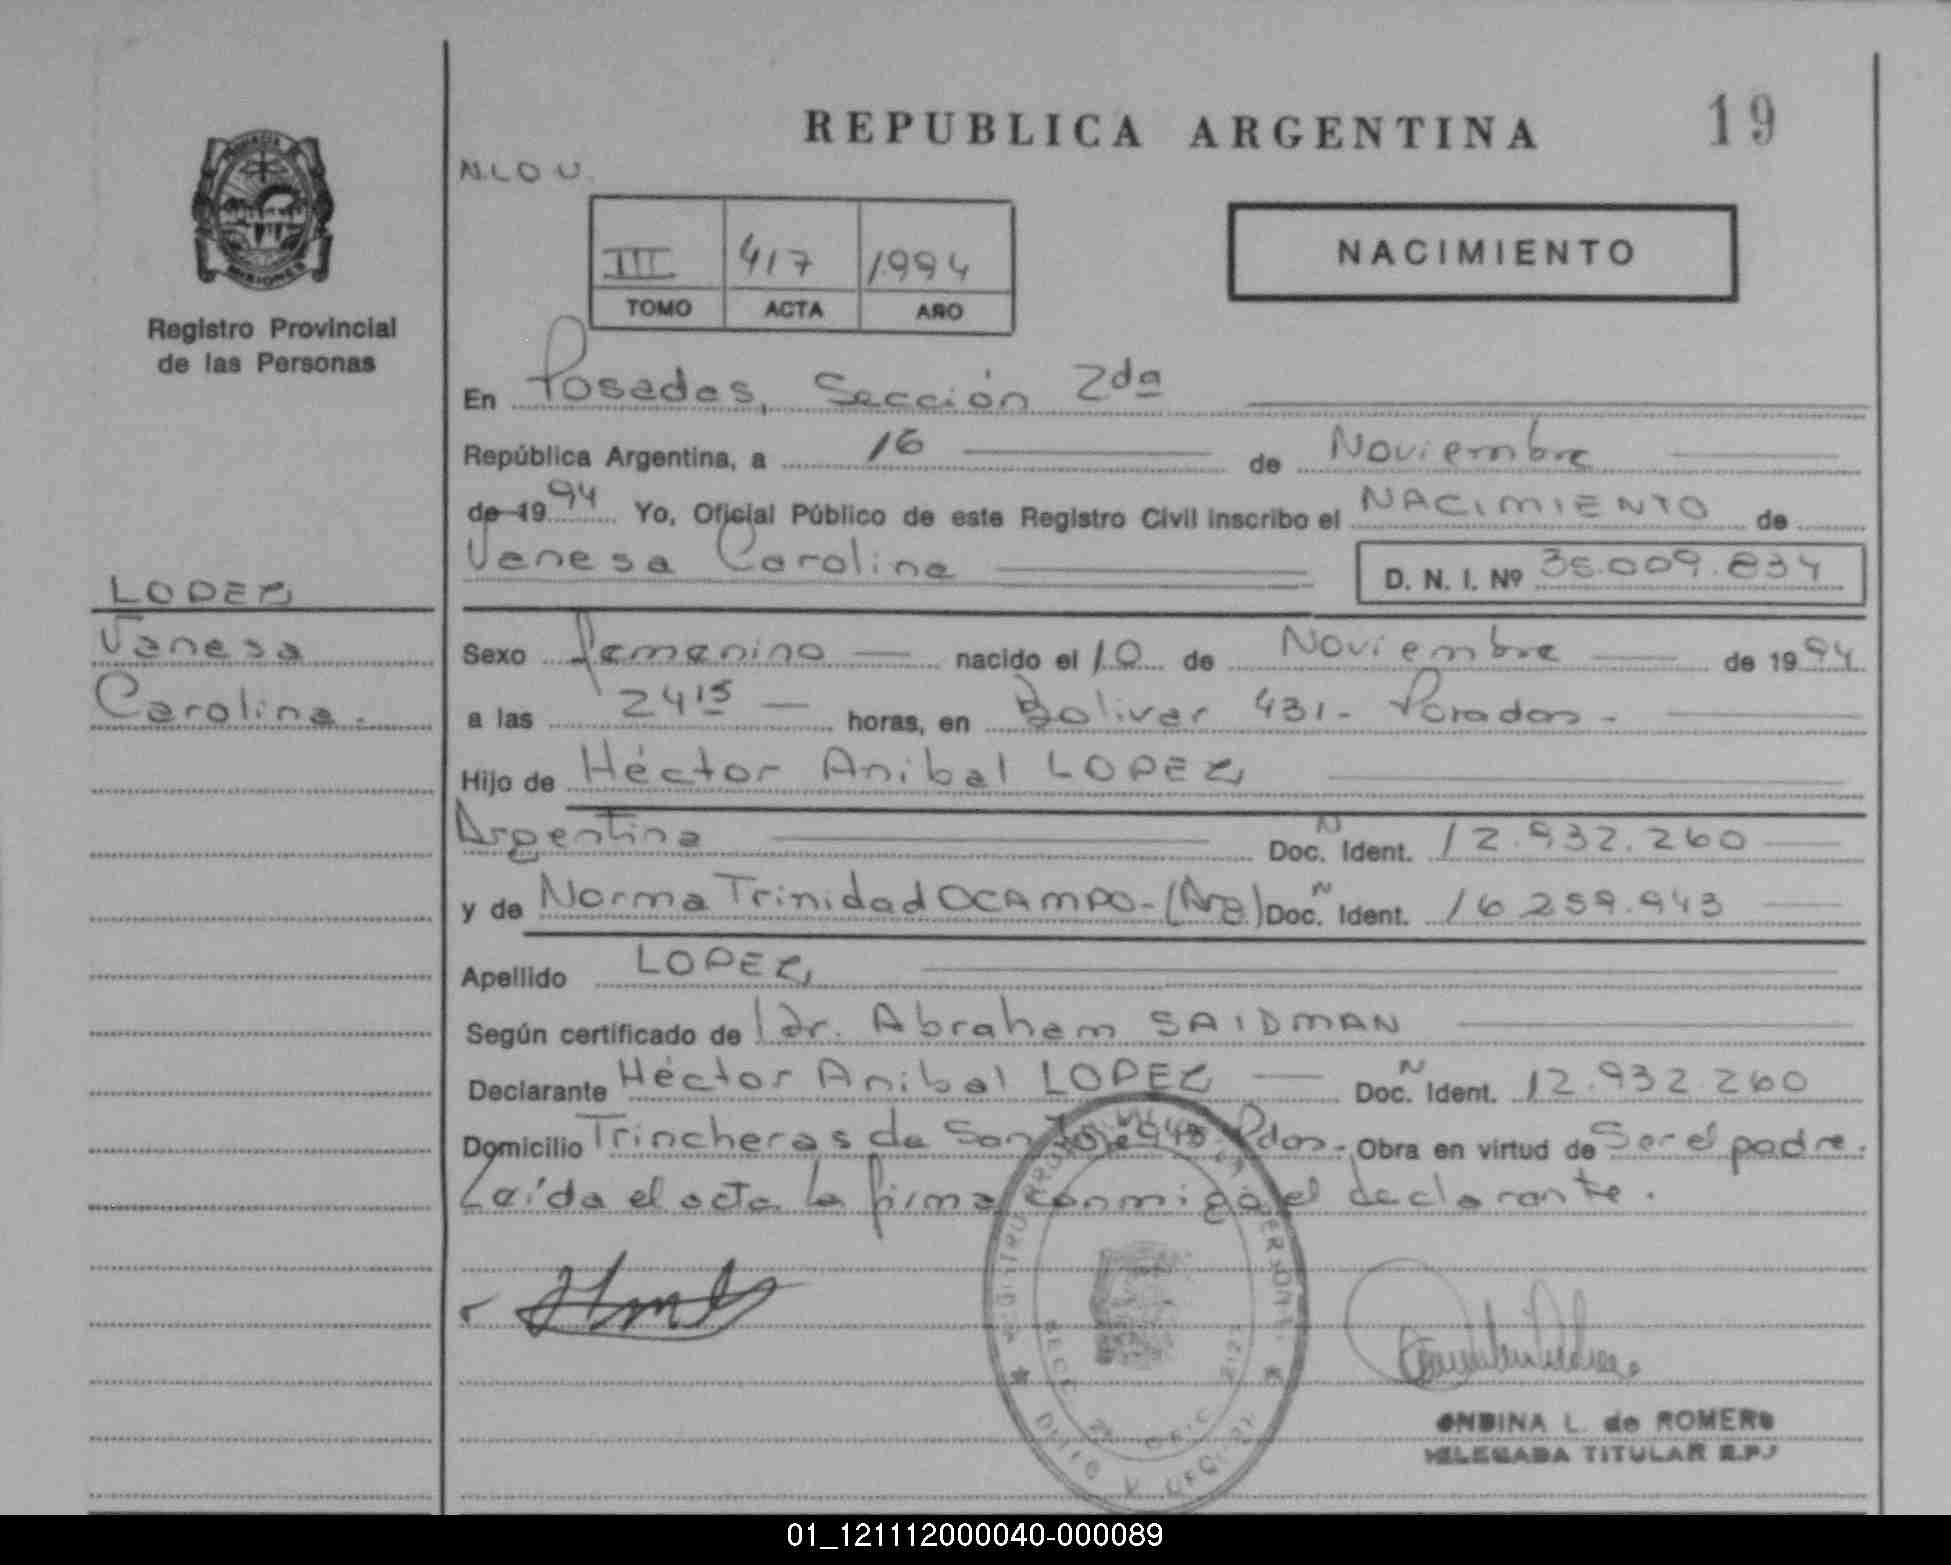 REPUBLICA ARGENTINA
19
N.L.O.U.
NACIMIENTO
III 417 1994
TOMO ACTA AÑO
MISIONES
Registro Provincial
de las Personas
En Posadas, Sección 2da
República Argentina, a 16 de Noviembre
de 1994 Yo, Oficial Público de este Registro Civil inscribo el NACIMIENTO de
Vanesa Carolina D. N. I. Nº 35.009.834
LOPEZ
Vanesa
Carolina.
Sexo Femenino nacido el 10 de Noviembre de 1994
a las 24 15 horas, en Bolivar 431 - Posadas -
Hijo de Héctor Anibal LOPEZ
Argentina Doc. N Ident. 12.932.260
y de Norma Trinidad OCAMPO - (Arg) Doc. N Ident. 16.259.943
Apellido LOPEZ
Según certificado de Dr. Abraham SAIDMAN
Declarante Héctor Anibal LOPEZ Doc. N Ident. 12.932.260
Domicilio Trincheras de San José Pdas - Obra en virtud de Ser el padre.
Leída el acta la firma conmigo el declarante.
ONDINA L. de ROMERO
DELEGADA TITULAR R.P.
01_121112000040-000089